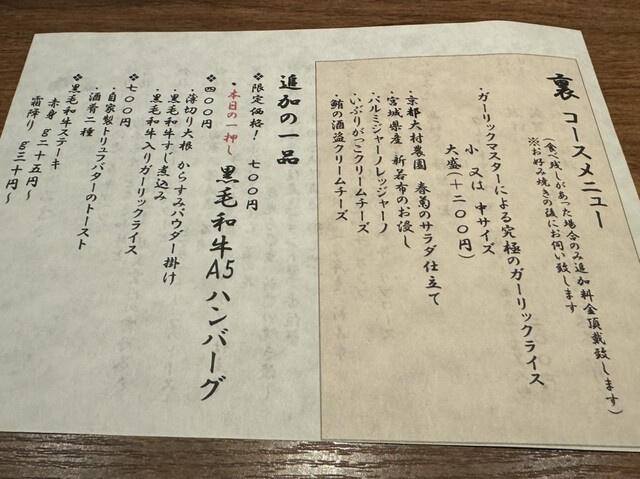 裏 コースメニュー
(食べ残しがあった場合のみ追加料金頂戴致します)
※お好み焼きの後にお伺い致します
・ガーリックマスターによる究極のガーリックライス
小 又は 中サイズ
大盛(+二〇〇円)
・京都大村農園 春菊のサラダ仕立て
・宮城県産 新若布のお浸し
・パルミジャーノレッジャーノ
・いぶりがっこクリームチーズ
・鮪の酒盗クリームチーズ
追加の一品
❖限定価格! 七〇〇円
・本日の一押し 黒毛和牛A5ハンバーグ
❖四〇〇円
・薄切り大根 からすみパウダー掛け
・黒毛和牛すじ煮込み
・黒毛和牛入りガーリックライス
❖七〇〇円
・自家製トリュフバターのトースト
・酒肴二種
❖黒毛和牛ステーキ
赤身 g二十五円〜
霜降り g三十円〜